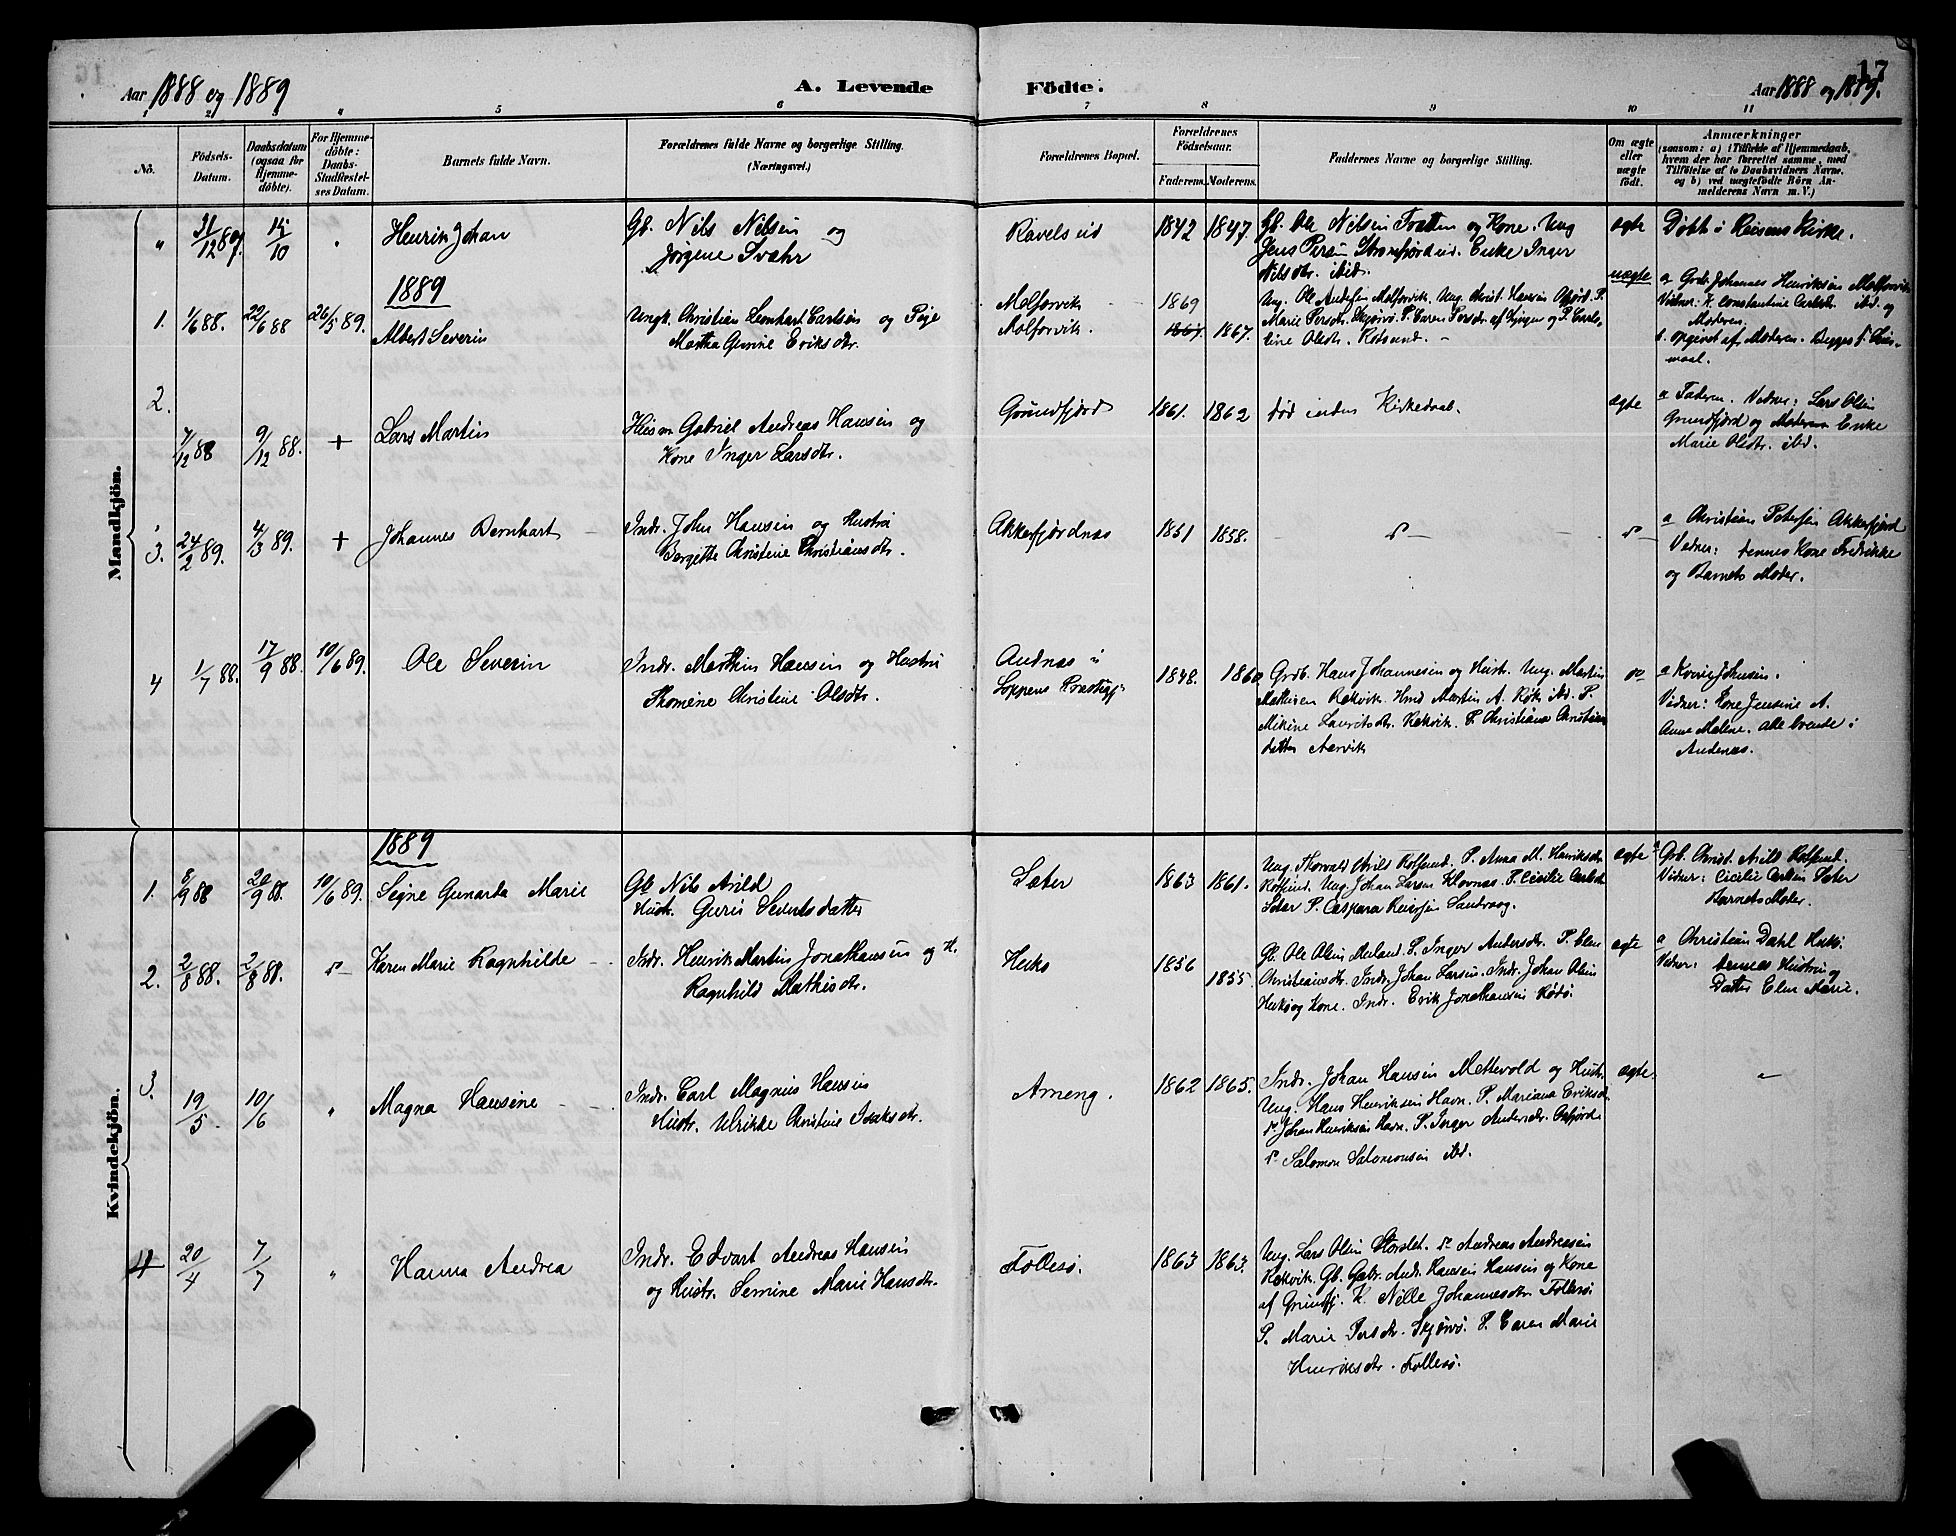 Aar 1888 og 1889
A. Levende
Födte.
17
Aar 1888 og 1889.
1 2 3 4 5 6 7 8 9 10 11
No.
Födsels-
Datum.
Daabsdatum
(ogsaa for
Hjemme-
döbte).
For Hjemme-
döbte:
Daabs-
Stadfæstel-
ses Datum.
Barnets fulde Navn.
Forældrenes fulde Navne og borgerlige Stilling.
(Næringsvei.)
Forældrenes Bopæl.
Forældrenes
Födselsaar.
Faderens. Moderens.
Faddernes Navne og borgerlige Stilling.
Om ægte
eller
uægte
födt.
Anmærkninger
(saasom: a) i Tilfælde af Hjemmedaab,
hvem der har forrettet samme, med
Tilföielse af to Daabsvidners Navne.
og b) ved uægtefödte Börn An-
melderens Navn m. V.)
Mandkjön.
" 31/12 87. 14/10 "
Henrik Johan
Gb. Nils Nilsen og
Jörgene Ivahr
Ravelseid
1842 1847.
Gb. Ole Nilsen Tretten og Kone. Ung
Jens Persen Straumfjordeid. Enke Inger
Nilsdtr. ibid.
ægte
Döbt i Reisens Kirke.
1889
1. 1/6 88. 22/6 88 26/5 89.
Albert Severin
Ungk. Christian Leonhart Carlsen og Pige
Martha Gurine Eriksdtr.
Molforvik
Molforvik.
1869
1867.
Ung. Ole Andersen Molforvik. Ung. Christ. Hansen P.
Marie Persdtr. Skjervö. P. Caren Persdtr. af Lyngen og P. Caro-
line Olsdtr. Rotsund.
uægte
a Grdb. Johannes Henriksen Molforvik
Vidner: K. Constantine Carlsdtr. ibid. og
Moderen.
b. opgivet af Moderen. Begges 1. Leier-
maal.
2. 7/12 88 9/12 88. +
Lars Martin
Husm. Gabriel Andreas Hansen og
Kone Inger Larsdtr.
Grundfjord
1861. 1862
död inden Kirkedaab.
ægte
a Faderen. Vidner: Lars Olsen
Grundfjord og Enke
Marie Olsdtr. ibd.
3. 24/2 89. 4/3 89. +
Johannes Bernhart
Indr. John Hansen og Hustru
Bergette Christine Christiansdtr.
Akkerfjordnæs
1851 1858.
a Christian Petersen Akkerfjord
Vidner: dennes Kone Fredrikke
og Barnets Moder.
4 1/7 88. 17/9 88. 10/6 89.
Ole Severin
Indr. Marthin Hansen og Hustru
Thomine Christine Olsdtr.
Andnæs i
Loppens Præstegj.
1848. 1860
Grdb. Hans Johannesen og Hust. Ung. Martin
Mathisen Rekvik. Hmd Martin A. Rek ibd. P.
Mikine Lauritsdtr. Rekvik. P. Christiana Christian
datter Aarvik
do
a Johnsen.
Vidner: Kone Jensine A.
Anne Malene. alle boende i
Andenæs.
Kvindekjön.
1889
1. 8/9 88 20/9 88. 10/6 89.
Signe Gunarda Marie
Gb Nils Arild
Hustr. Guri Sivertsdatter
Sæter
1863 1861.
Ung. Thorvald Arild Rotsund. P. Anna M. Henriksdtr.
Rotsund. Ung. Johan Larsen Klovnæs. P. Cicilie Carlsdtr
Seter P. Caspara Sandvaag.
ægte
a Grb. Christ. Arild Rotsund.
Vidner: Cicilie Carlsen Sæter
Barnets Moder.
2. 2/8 88. 2/8 88.
Karen Marie Ragnhilde
Indr. Henrik Martin Jonathansen og H.
Ragnhild Mathisdtr.
Hukö
1856
1855
Gb. Ole Olsen Meiland. P. Inger Andersdtr. P. Elen
Christiansdtr. Indr. Johan Larsen. Indr. Johan Olsen
Hukö og Kone. Indr. Erik Jonathansen Rödö.
ægte
a Christian Dahl Hukö.
Vidner: dennes Hustru og
Datter Elen Marie.
3. 19/5. 10/6 "
Magna Hansine
Indr. Carl Magnus Hansen
Hustr. Ulrikke Christine Isaksdtr.
Arneng.
1862 1865.
Indr. Johan Hansen Mettevold og Hustr.
Ung. Hans Henriksen Havn. P. Mariana Eriksdtr.
do Johan Henriksen Havn. P. Inger Andersdtr. Oxfjord.
do Salomon Salomonsen ibd.
ægte.
4 20/4 7/7 "
Hanna Andrea
Indr. Edvart Andreas Hansen
og Hustr. Semine Marie Hansdtr.
Follesö.
1863 1863.
Ung. Lars Olsen Storslet. do Andreas Andreasen
Rekvik. Gb. Gabr. Andr. Hansen Hansen og Kone
af Grundfj. K. Nille Johannesdtr. Follesö.
P. Marie Persdtr. Skjervö. P. Caren Marie
Henriksdtr. Follesö.